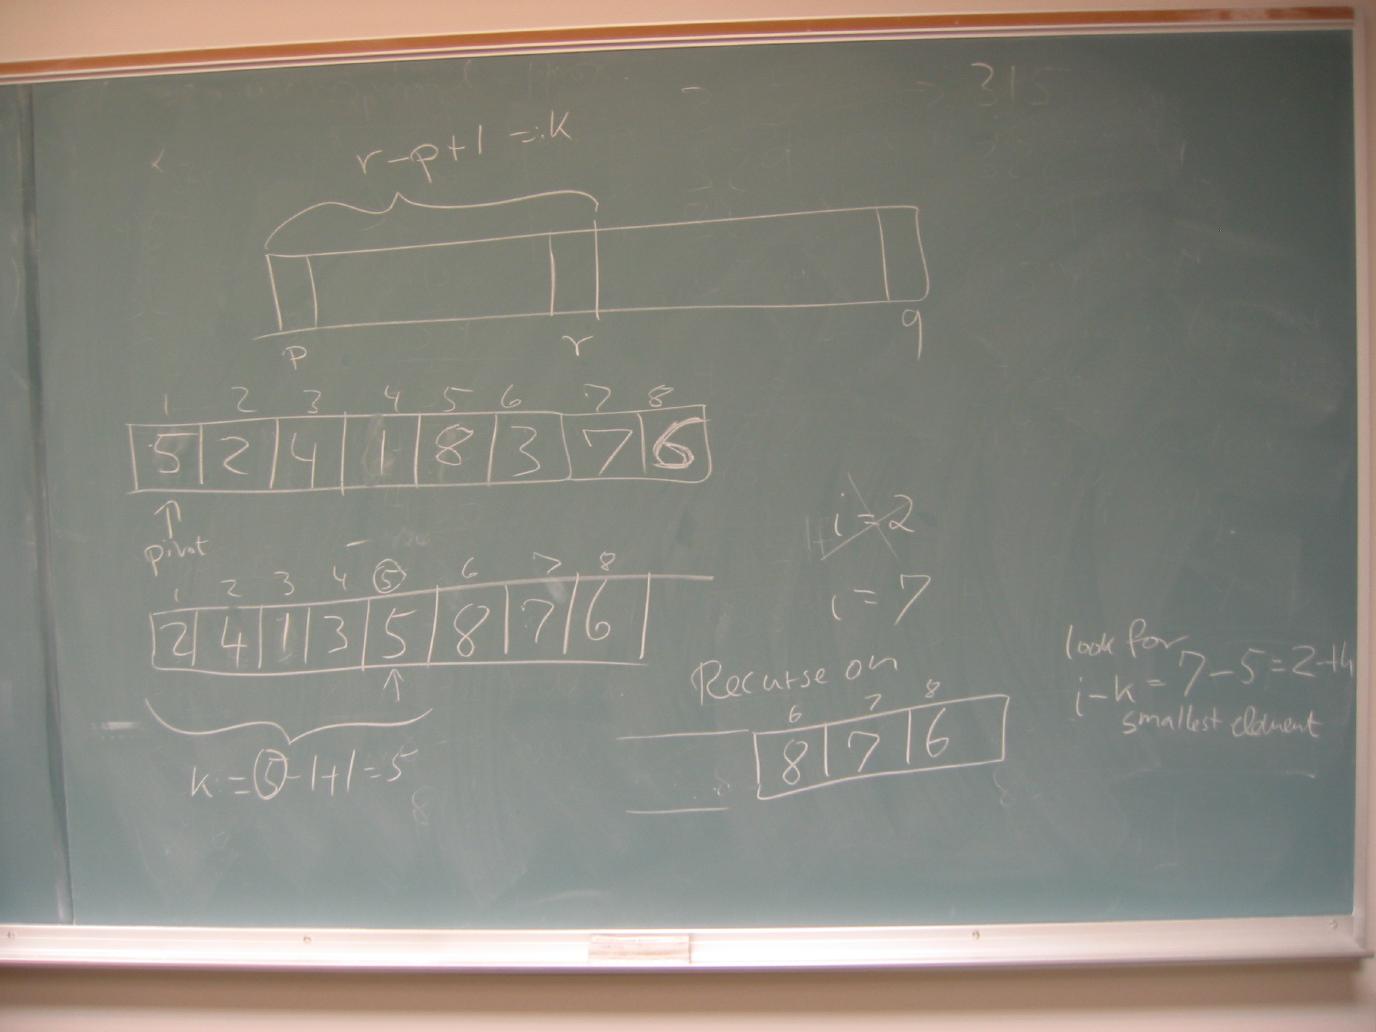 315
r-p+1 =: k
p r q
1 2 3 4 5 6 7 8
5 2 4 1 8 3 7 6
↑
pivot
i=2
1 2 3 4 5 6 7 8
2 4 1 3 5 8 7 6
↑
i=7
k=5-1+1=5
Recurse on
6 7 8
8 7 6
look for
i-k=7-5=2th
smallest element